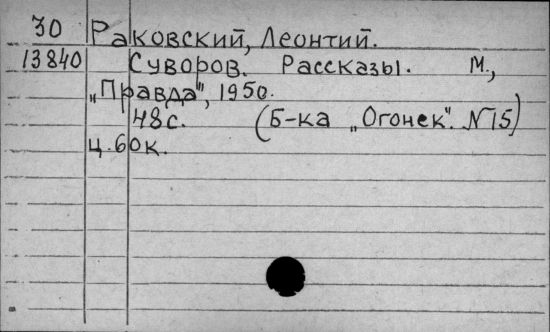 30 Раковский, Леонтий.
13840 Суворов. Рассказы. М.,
„Правда", 1950.
48с. (Б-ка „Огонек". N 15)
ц. 60к.